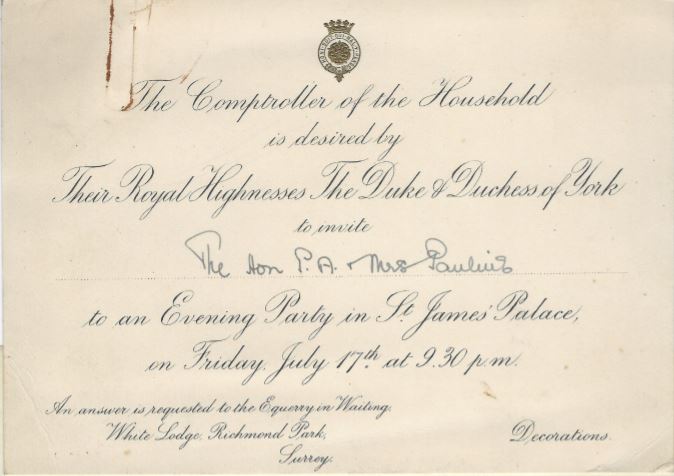 The Comptroller of the Household
is desired by
Their Royal Highnesses The Duke & Duchess of York
to invite
The Hon P. A. + Mrs
to an Evening Party in St. James' Palace,
on Friday, July 17th at 9.30 p.m.
An answer is requested to the Equerry in Waiting,
White Lodge, Richmond Park,
Surrey.
Decorations.